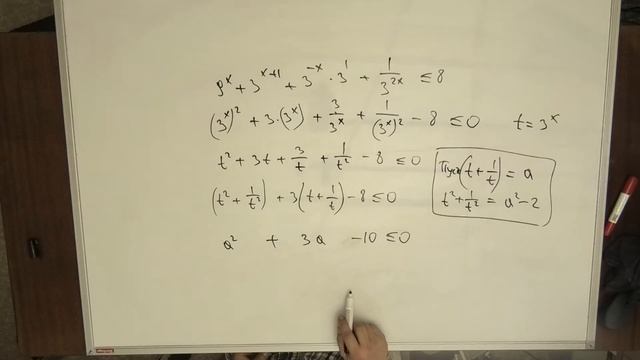 9^x + 3^{x+1} + 3^{-x} · 3^1 + 1/3^{2x} ≤ 8
(3^x)^2 + 3·(3^x) + 3/3^x + 1/(3^x)^2 - 8 ≤ 0 t = 3^x
t^2 + 3t + 3/t + 1/t^2 - 8 ≤ 0
Пусть (t + 1/t) = a
(t^2 + 1/t^2) + 3(t + 1/t) - 8 ≤ 0
t^2 + 1/t^2 = a^2 - 2
a^2 + 3a - 10 ≤ 0